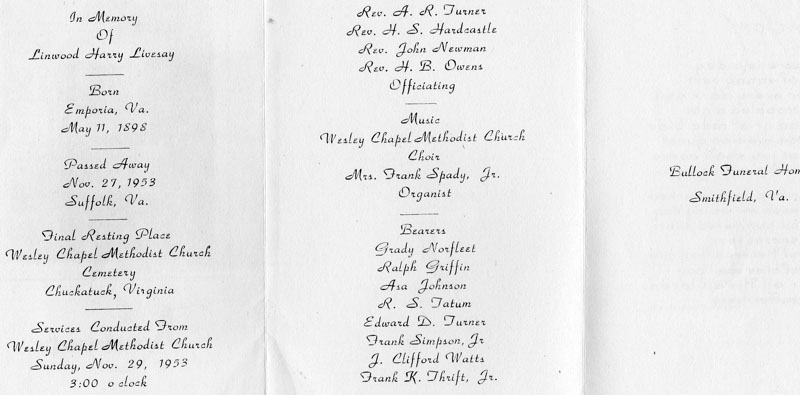 In Memory
Of
Linwood Harry Livesay
Born
Emporia, Va.
May 11, 1898
Passed Away
Nov. 27, 1953
Suffolk, Va.
Final Resting Place
Wesley Chapel Methodist Church
Cemetery
Chuckatuck, Virginia
Services Conducted From
Wesley Chapel Methodist Church
Sunday, Nov. 29, 1953
3:00 o clock
Rev. A. R. Turner
Rev. H. S. Hardcastle
Rev. John Newman
Rev. H. B. Owens
Officiating
Music
Wesley Chapel Methodist Church
Choir
Mrs. Frank Spady, Jr.
Organist
Bearers
Grady Norfleet
Ralph Griffin
Asa Johnson
R. S. Tatum
Edward D. Turner
Frank Simpson, Jr
J. Clifford Watts
Frank K. Thrift, Jr.
Bullock Funeral Hom
Smithfield, Va.